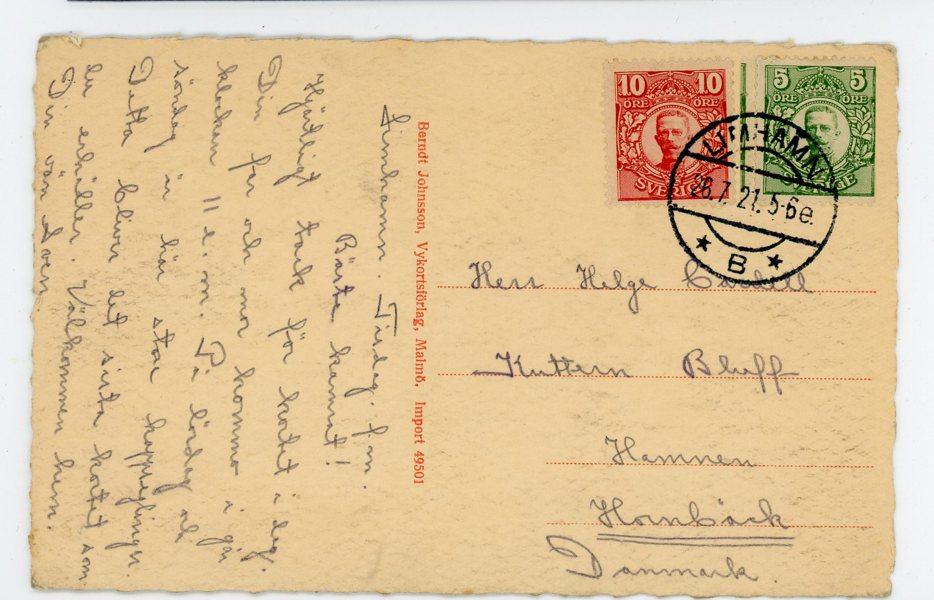 Limhamn. Tisdag. f.m.
Bäste kamrat!
Hjärtligt tack för kortet i dag.
Din far och mor kommo i går
klockan 11 e.m. På lördag och
söndag är här stor kappseglingar
Detta bliver det sista kortet som
du erhåller. Välkommen hem.
Din vän Sven
Berndt Johnsson, Vykortsförlag, Malmö. Import 49501
10 10
ÖRE ÖRE
SVERIGE
5 5
ÖRE ÖRE
SVERIGE
LIMHAMN
26.7.21.5-6e.
B
Herr Helge
Kuttern Bluff
Hamnen
Hornbäck
Danmark.